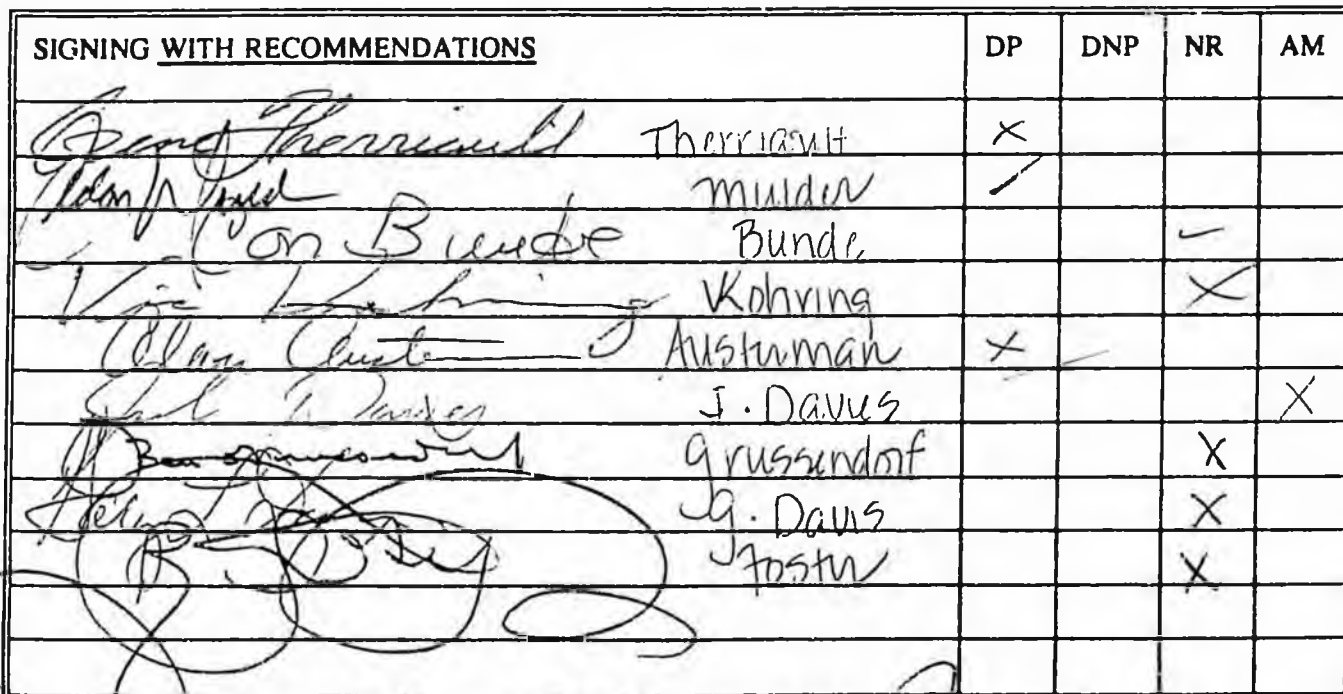 SIGNING WITH RECOMMENDATIONS DP DNP NR AM
Gene Therriault Therriault X
Mulder ✓
Con Bunde Bunde ✓
Vic Kohring Kohring X
Alan Austerman Austerman X
J. Davies X
Ben Grussendorf Grussendorf X
G. Davis X
Foster X